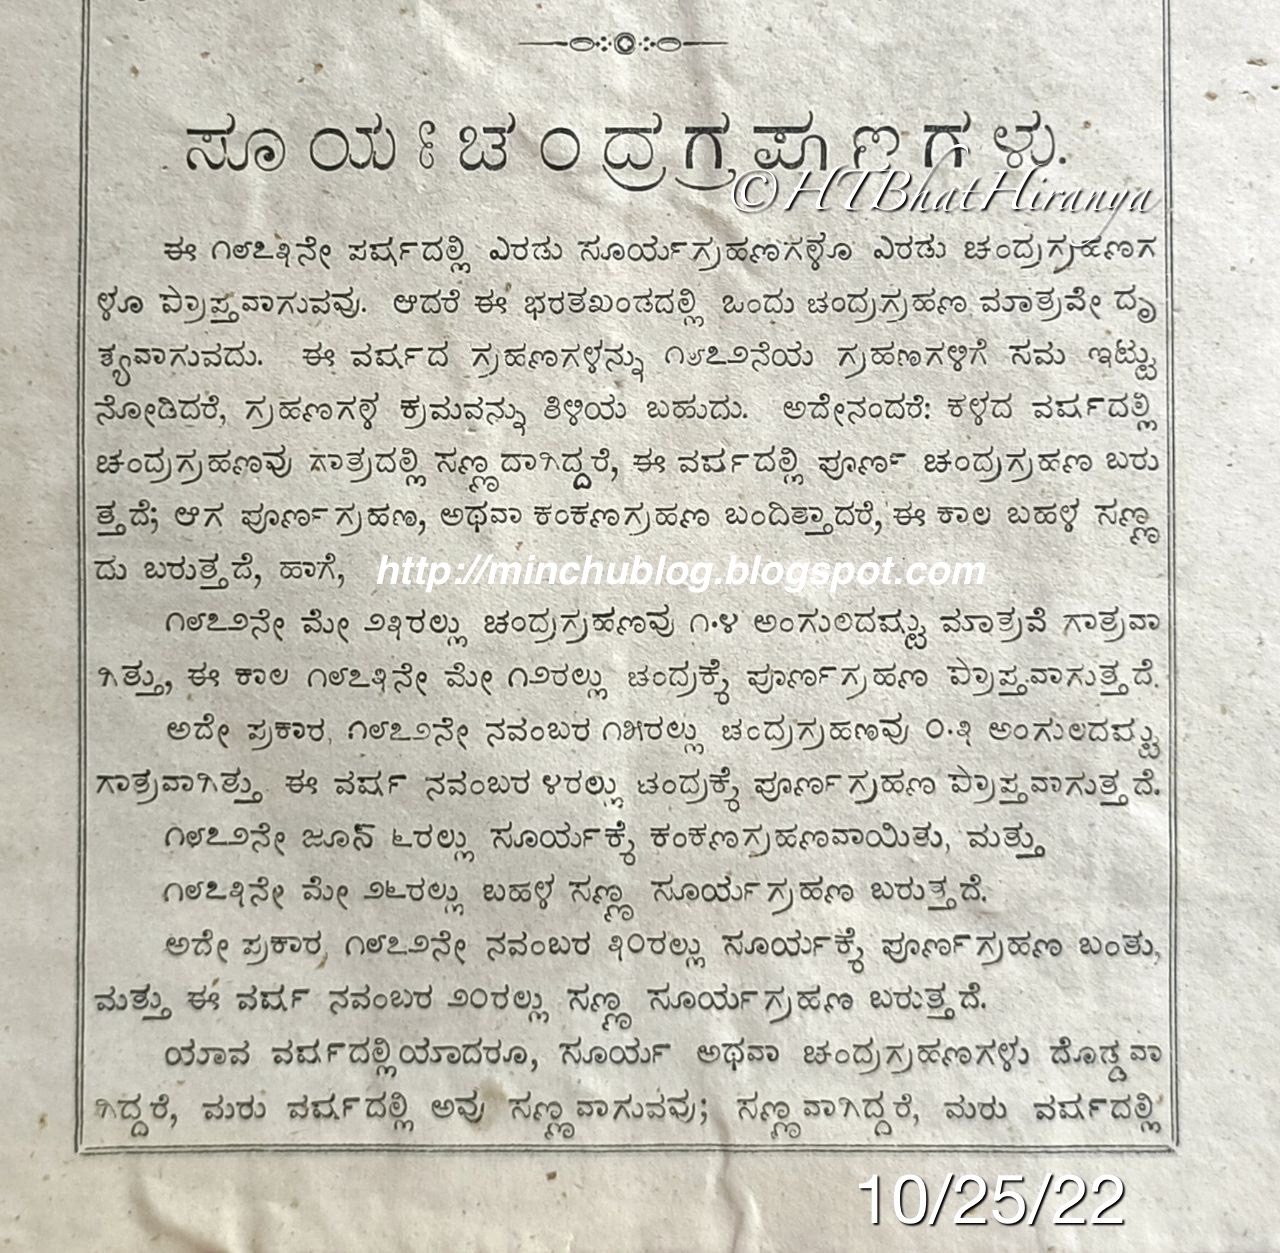 ಸೂರ್ಯಚಂದ್ರಗ್ರಹಣಗಳು.
©HTBhatHiranya
ಈ ೧೮೭೩ನೇ ವರ್ಷದಲ್ಲಿ ಎರಡು ಸೂರ್ಯಗ್ರಹಣಗಳೂ ಎರಡು ಚಂದ್ರಗ್ರಹಣಗ
ಳೂ ಪ್ರಾಪ್ತವಾಗುವವು. ಆದರೆ ಈ ಭರತಖಂಡದಲ್ಲಿ ಒಂದು ಚಂದ್ರಗ್ರಹಣ ಮಾತ್ರವೇ ದೃ
ಶ್ಯವಾಗುವದು. ಈ ವರ್ಷದ ಗ್ರಹಣಗಳನ್ನು ೧೮೭೨ನೆಯ ಗ್ರಹಣಗಳಿಗೆ ಸಮ ಇಟ್ಟು
ನೋಡಿದರೆ, ಗ್ರಹಣಗಳ ಕ್ರಮವನ್ನು ತಿಳಿಯ ಬಹುದು. ಅದೇನಂದರೆ: ಕಳದ ವರ್ಷದಲ್ಲಿ
ಚಂದ್ರಗ್ರಹಣವು ಗಾತ್ರದಲ್ಲಿ ಸಣ್ಣದಾಗಿದ್ದರೆ, ಈ ವರ್ಷದಲ್ಲಿ ಪೂರ್ಣ ಚಂದ್ರಗ್ರಹಣ ಬರು
ತ್ತದೆ; ಆಗ ಪೂರ್ಣಗ್ರಹಣ, ಅಥವಾ ಕಂಕಣಗ್ರಹಣ ಬಂದಿತ್ತಾದರೆ, ಈ ಕಾಲ ಬಹಳ ಸಣ್ಣ
ದು ಬರುತ್ತದೆ, ಹಾಗೆ,
http://minchublog.blogspot.com
೧೮೭೨ನೇ ಮೇ ೨೩ರಲ್ಲು ಚಂದ್ರಗ್ರಹಣವು ೧·೪ ಅಂಗುಲದಷ್ಟು ಮಾತ್ರವೆ ಗಾತ್ರವಾ
ಗಿತ್ತು, ಈ ಕಾಲ ೧೮೭೩ನೇ ಮೇ ೧೨ರಲ್ಲು ಚಂದ್ರಕ್ಕೆ ಪೂರ್ಣಗ್ರಹಣ ಪ್ರಾಪ್ತವಾಗುತ್ತದೆ.
ಅದೇ ಪ್ರಕಾರ, ೧೮೭೨ನೇ ನವಂಬರ ೧೫ರಲ್ಲು ಚಂದ್ರಗ್ರಹಣವು ೦·೩ ಅಂಗುಲದಷ್ಟು
ಗಾತ್ರವಾಗಿತ್ತು ಈ ವರ್ಷ ನವಂಬರ ೪ರಲ್ಲು ಚಂದ್ರಕ್ಕೆ ಪೂರ್ಣಗ್ರಹಣ ಪ್ರಾಪ್ತವಾಗುತ್ತದೆ.
೧೮೭೨ನೇ ಜೂನ್ ೬ರಲ್ಲು ಸೂರ್ಯಕ್ಕೆ ಕಂಕಣಗ್ರಹಣವಾಯಿತು, ಮತ್ತು
೧೮೭೩ನೇ ಮೇ ೨೬ರಲ್ಲು ಬಹಳ ಸಣ್ಣ ಸೂರ್ಯಗ್ರಹಣ ಬರುತ್ತದೆ.
ಅದೇ ಪ್ರಕಾರ, ೧೮೭೨ನೇ ನವಂಬರ ೩೦ರಲ್ಲು ಸೂರ್ಯಕ್ಕೆ ಪೂರ್ಣಗ್ರಹಣ ಬಂತು,
ಮತ್ತು ಈ ವರ್ಷ ನವಂಬರ ೨೦ರಲ್ಲು ಸಣ್ಣ ಸೂರ್ಯಗ್ರಹಣ ಬರುತ್ತದೆ.
ಯಾವ ವರ್ಷದಲ್ಲಿಯಾದರೂ, ಸೂರ್ಯ ಅಥವಾ ಚಂದ್ರಗ್ರಹಣಗಳು ದೊಡ್ಡವಾ
ಗಿದ್ದರೆ, ಮರು ವರ್ಷದಲ್ಲಿ ಅವು ಸಣ್ಣವಾಗುವವು; ಸಣ್ಣವಾಗಿದ್ದರೆ, ಮರು ವರ್ಷದಲ್ಲಿ
10/25/22